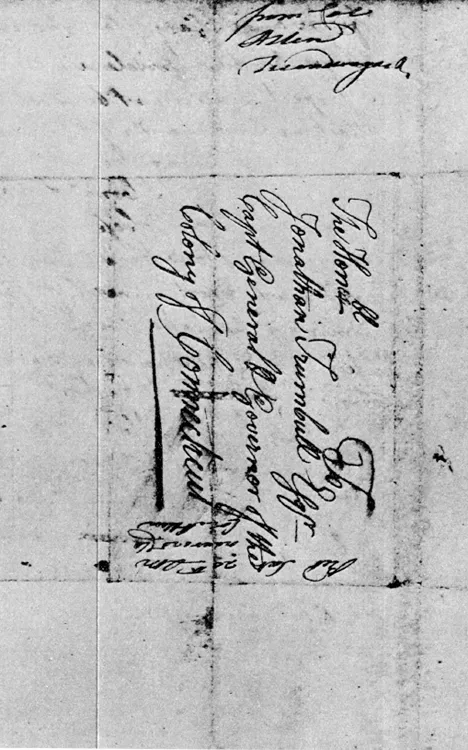 To
The Honble
Jonathan Trumbull Esqr
Capt General & Governor of the
Colony of Connecticut
from Col
Allen
Ticonderoga